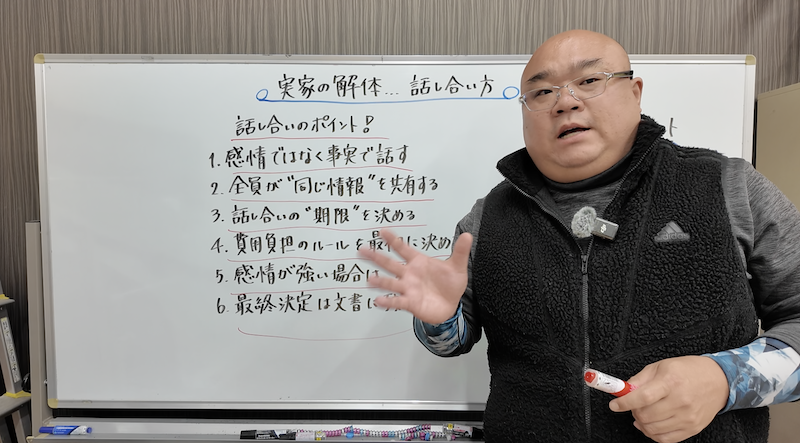 実家の解体… 話し合い方
話し合いのポイント!
1. 感情ではなく事実で話す
2. 全員が“同じ情報”を共有する
3. 話し合いの“期限”を決める
4. 費用負担のルールを最初に決め
5. 感情が強い場合は
6. 最終決定は文書に
ト
adidas